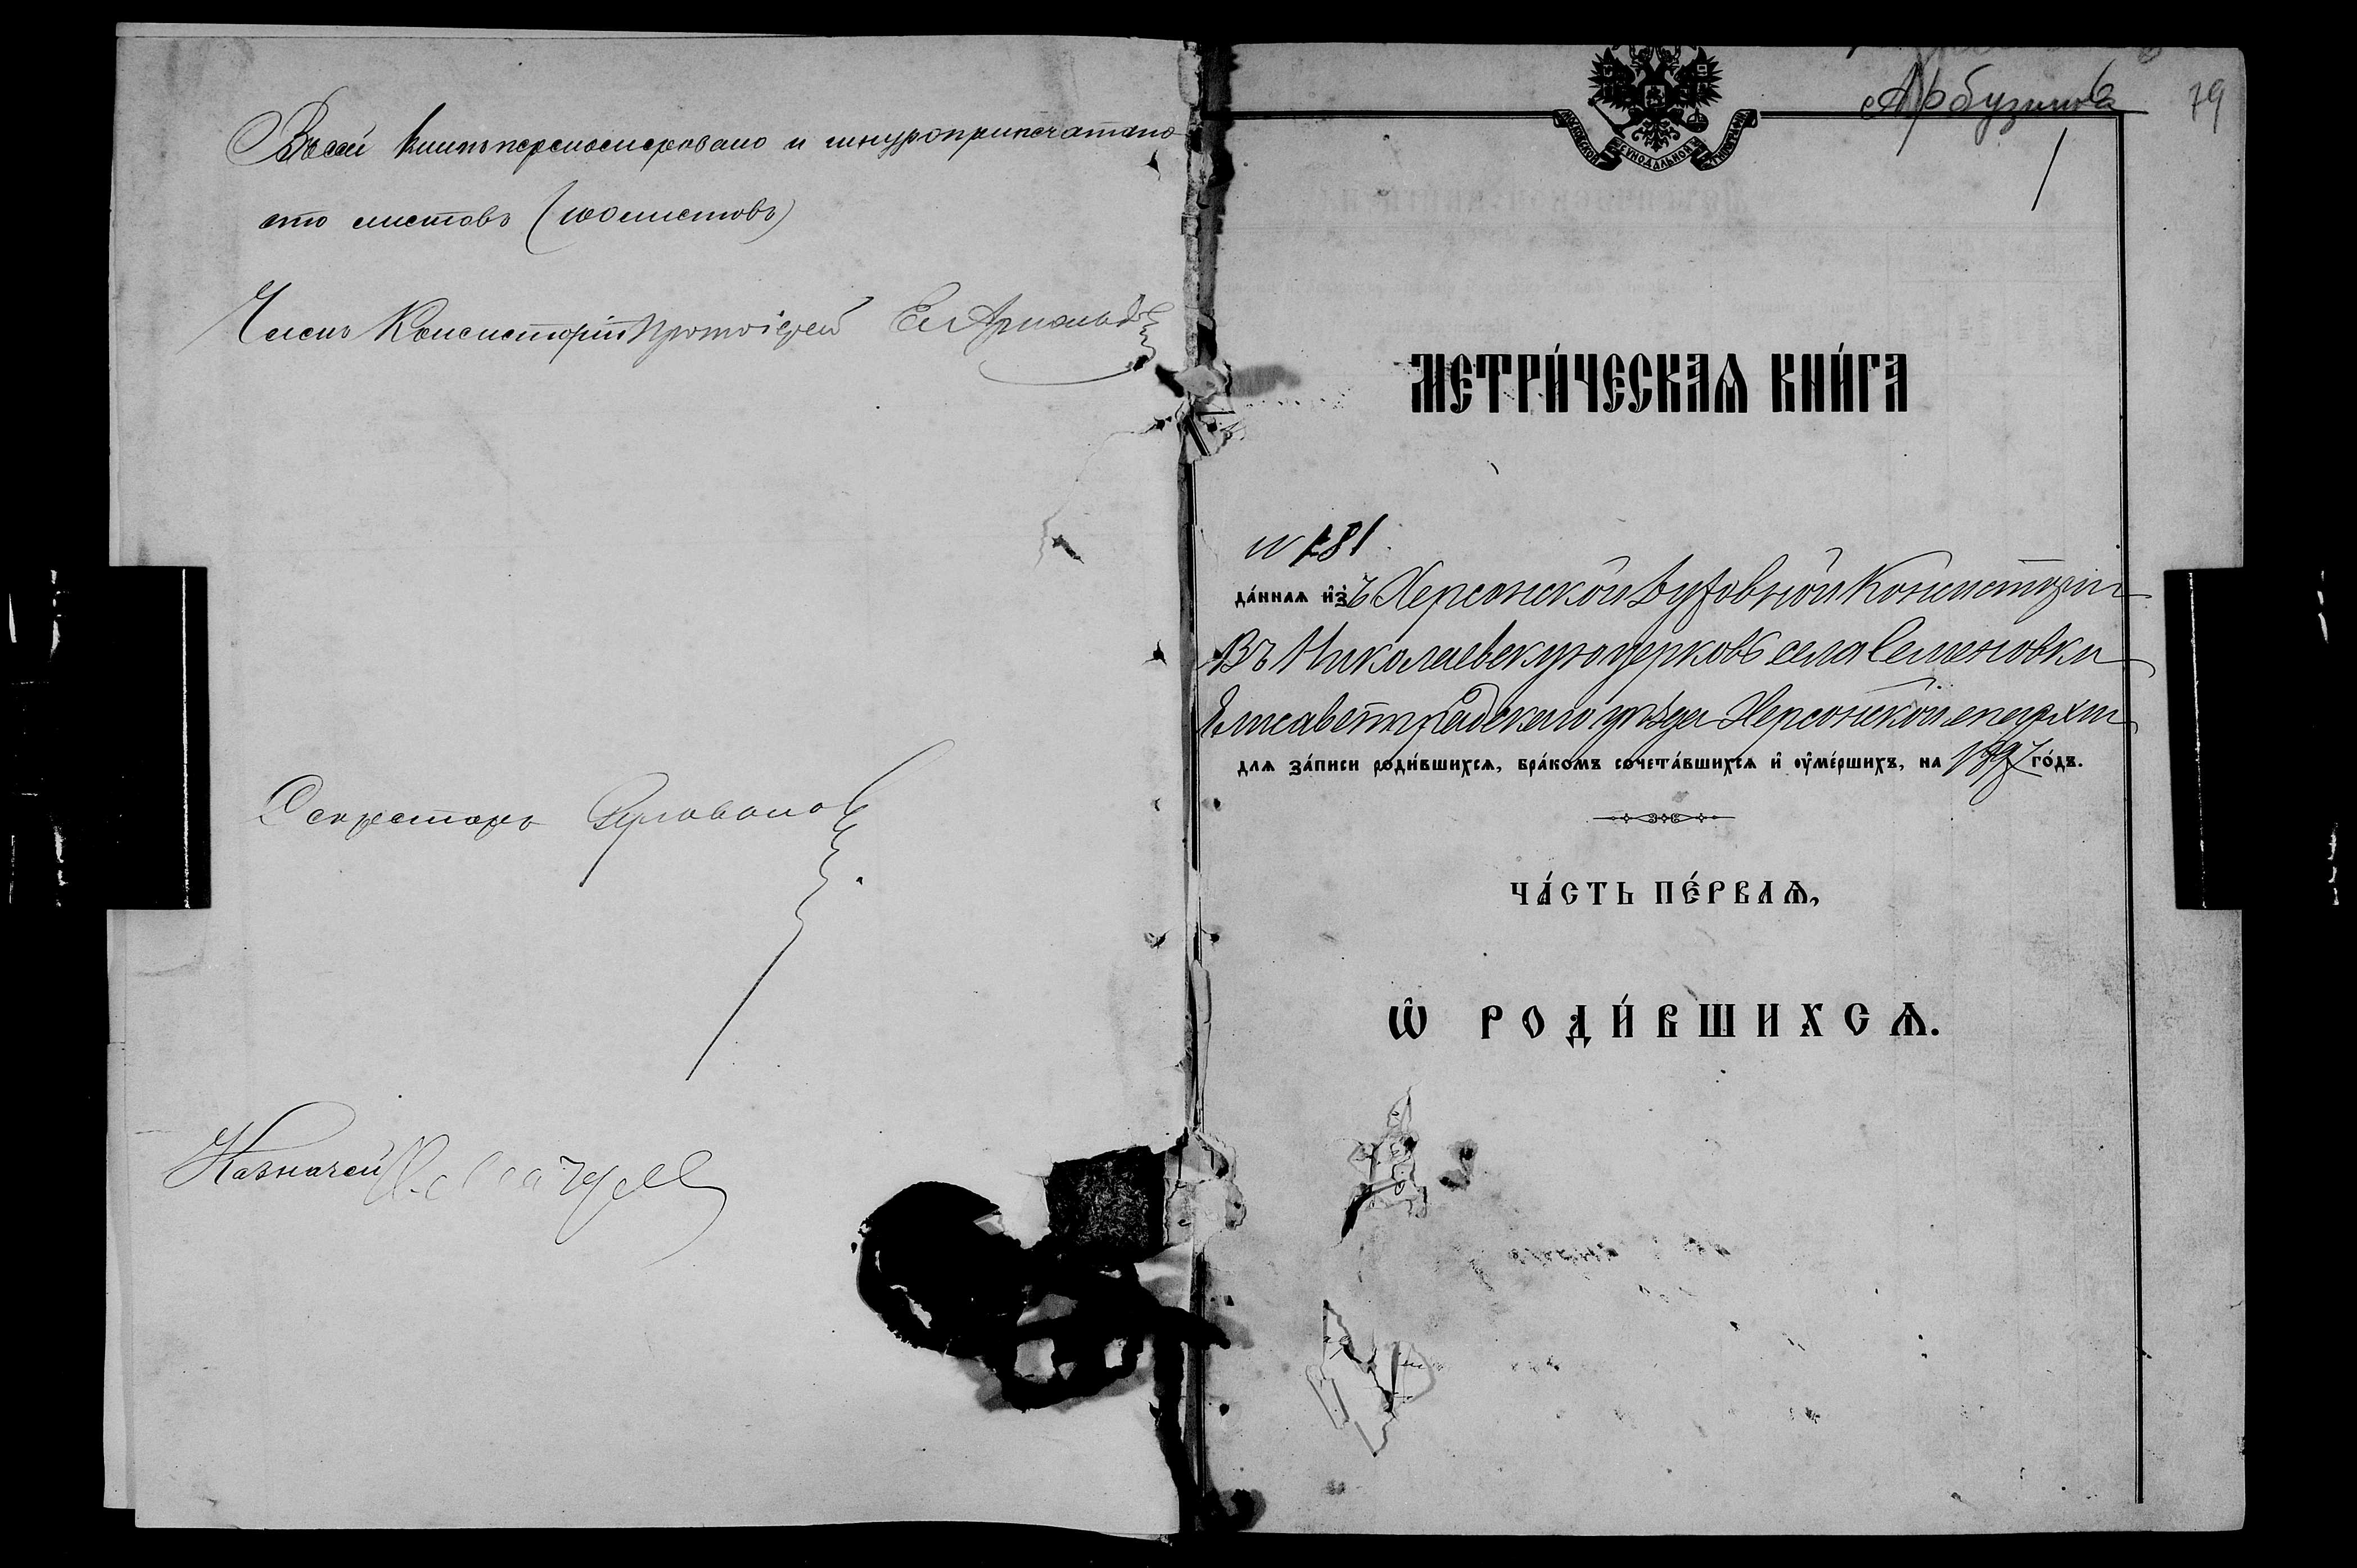 Въ сей книгѣ переномеровано и шнуроприпечатано
сто листовъ (100 листовъ)
Членъ Консисторіи Протоіерей Ел Арнольдов
Секретарь
Казначей
Арбузинка
79
1
МОСКОВСКОЙ СѴНОДАЛЬНОЙ ТИПОГРАФІИ
МЕТРИ́ЧЕСКАѦ КНИ́ГА
N 181
да́ннаѧ и҆зъ Херсонской Духовной Консисторіи
Въ Николаевскую церковь села Семеновки
Елисаветградскаго уѣзда Херсонской епархіи
длѧ за́писи роди́вшихсѧ, бра́комъ сочета́вшихсѧ и҆ оу҆ме́ршихъ, на 1897 го́дъ.
ЧА́СТЬ ПЕ́РВАѦ,
Ѽ РОДИ́ВШИХСѦ.